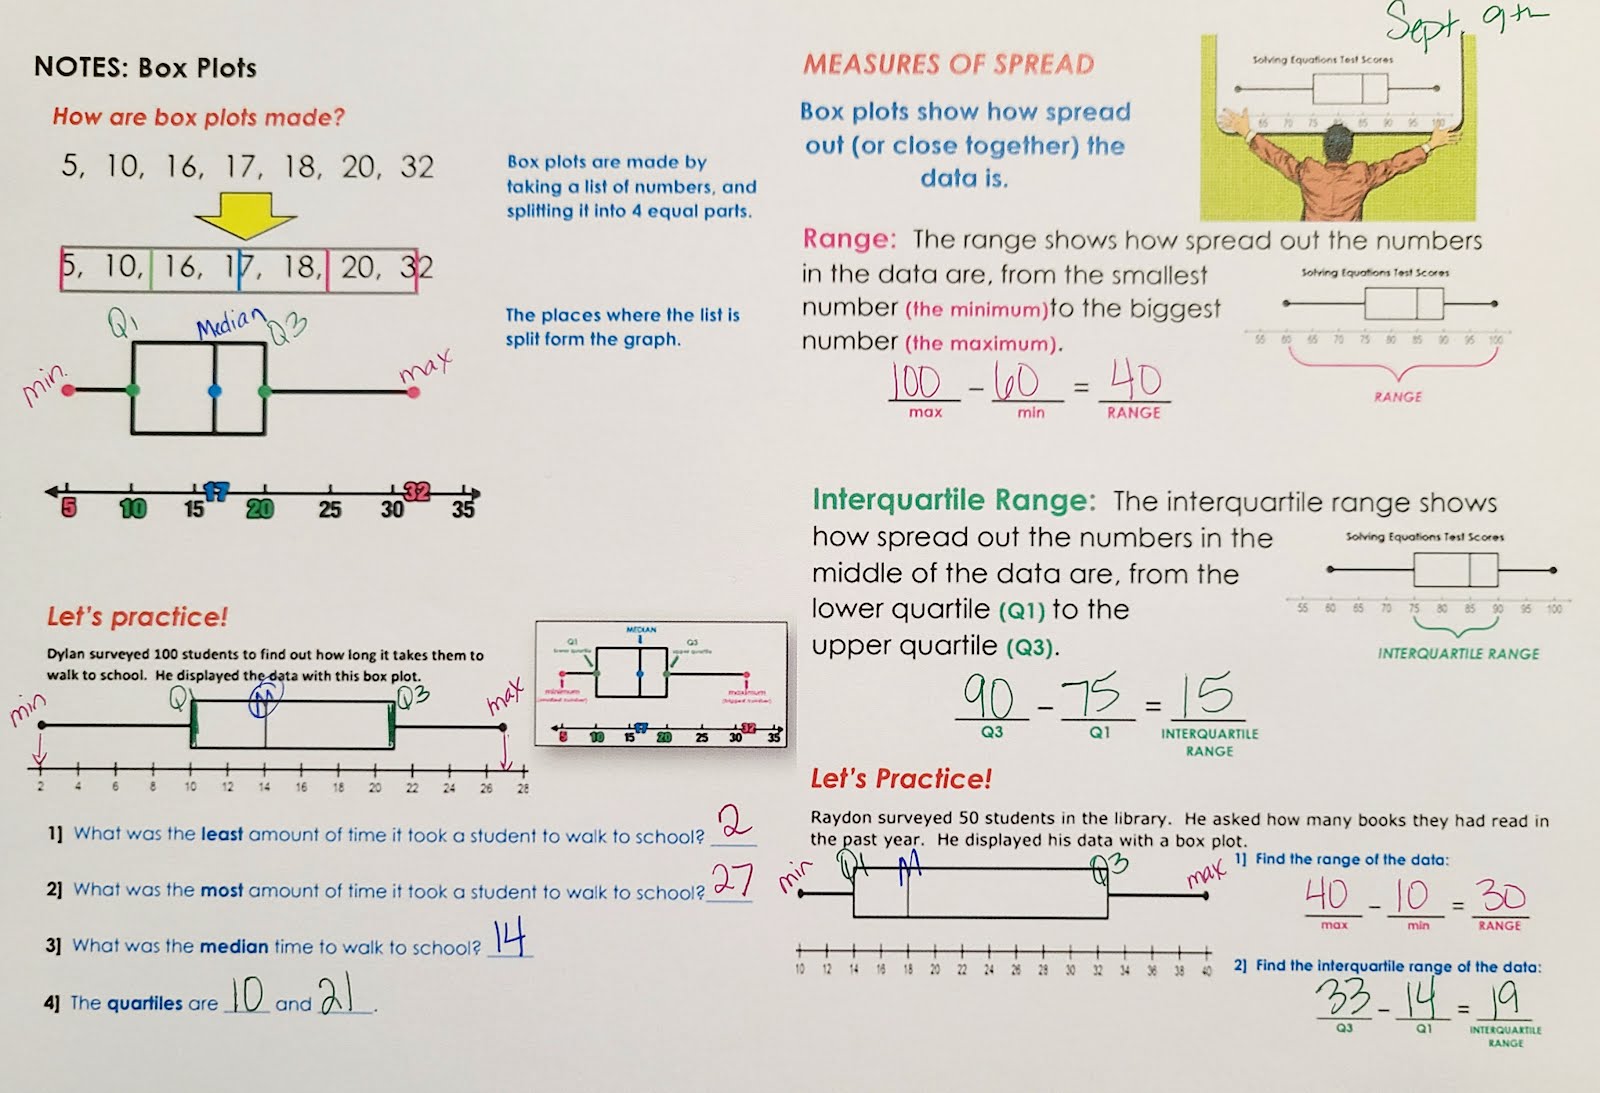 Sept. 9th
NOTES: Box Plots
How are box plots made?
5, 10, 16, 17, 18, 20, 32
Box plots are made by
taking a list of numbers, and
splitting it into 4 equal parts.
5, 10, 16, 17, 18, 20, 32
Q1 Median Q3
min. max
The places where the list is
split form the graph.
5 10 15 17 20 25 30 32 35
Let's practice!
Dylan surveyed 100 students to find out how long it takes them to
walk to school. He displayed the data with this box plot.
min Q1 M Q3 max
2 4 6 8 10 12 14 16 18 20 22 24 26 28
MEDIAN
Q1 Q3
lower quartile upper quartile
minimum maximum
(smallest number) (biggest number)
5 10 15 17 20 25 30 32 35
1] What was the least amount of time it took a student to walk to school? 2
2] What was the most amount of time it took a student to walk to school? 27
3] What was the median time to walk to school? 14
4] The quartiles are 10 and 21.
MEASURES OF SPREAD
Box plots show how spread
out (or close together) the
data is.
Solving Equations Test Scores
65 70 75 80 85 90 95 100
Range: The range shows how spread out the numbers
in the data are, from the smallest
number (the minimum) to the biggest
number (the maximum).
100 - 60 = 40
max min RANGE
Solving Equations Test Scores
55 60 65 70 75 80 85 90 95 100
RANGE
Interquartile Range: The interquartile range shows
how spread out the numbers in the
middle of the data are, from the
lower quartile (Q1) to the
upper quartile (Q3).
Solving Equations Test Scores
55 60 65 70 75 80 85 90 95 100
INTERQUARTILE RANGE
90 - 75 = 15
Q3 Q1 INTERQUARTILE
RANGE
Let's Practice!
Raydon surveyed 50 students in the library. He asked how many books they had read in
the past year. He displayed his data with a box plot.
min Q1 M Q3 max
10 12 14 16 18 20 22 24 26 28 30 32 34 36 38 40
1] Find the range of the data:
40 - 10 = 30
max min RANGE
2] Find the interquartile range of the data:
33 - 14 = 19
Q3 Q1 INTERQUARTILE
RANGE